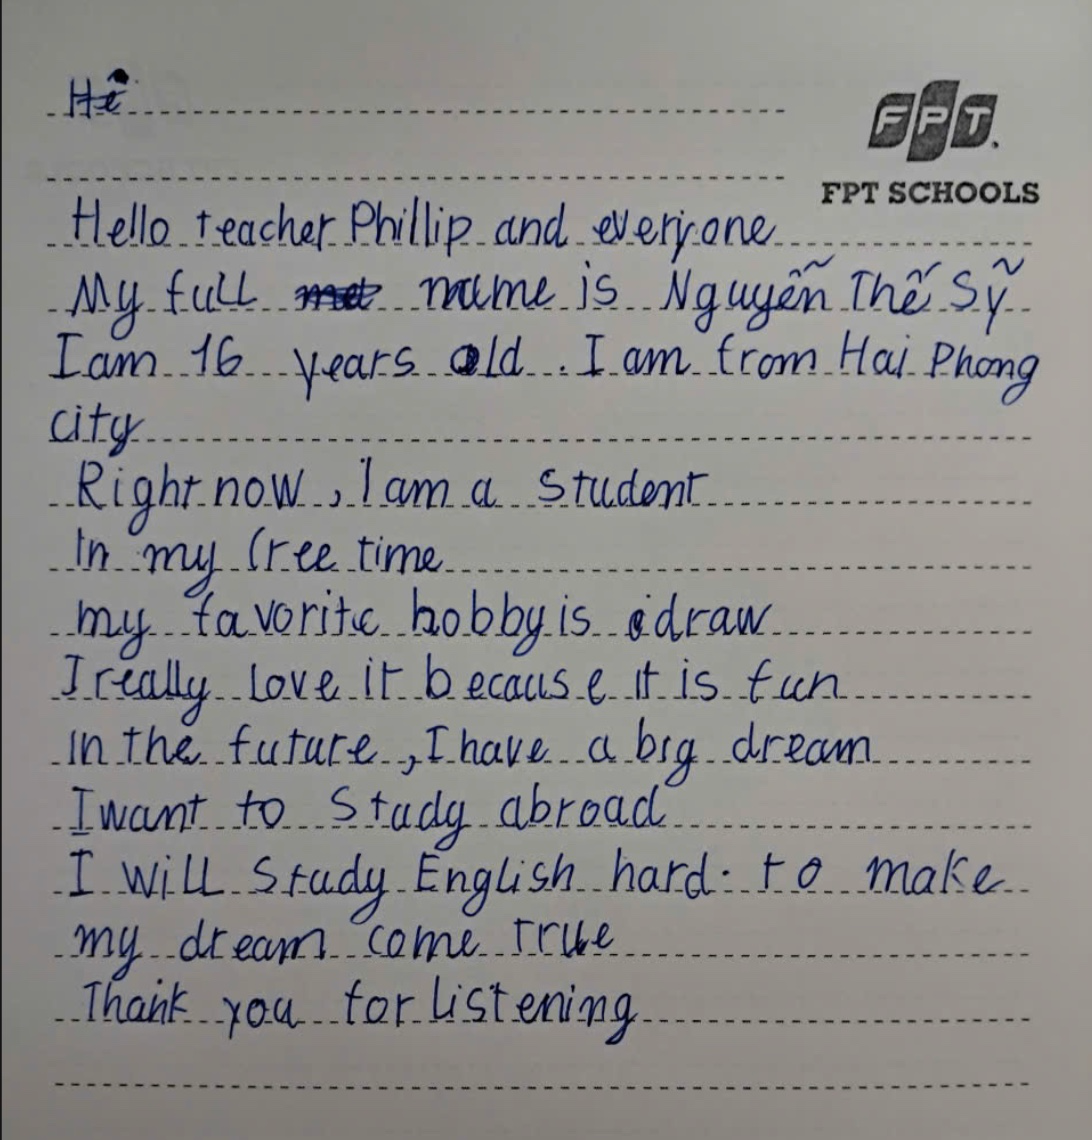 Hi
FPT
FPT SCHOOLS
Hello teacher Phillip and everyone
My full name is Nguyễn Thế Sỹ
I am 16 years old . I am from Hai Phong
city
Right now , I am a student
In my free time
my favorite hobby is draw
I really love it because it is fun
In the future , I have a big dream
I want to study abroad
I will study English hard . to make
my dream come true
Thank you for listening